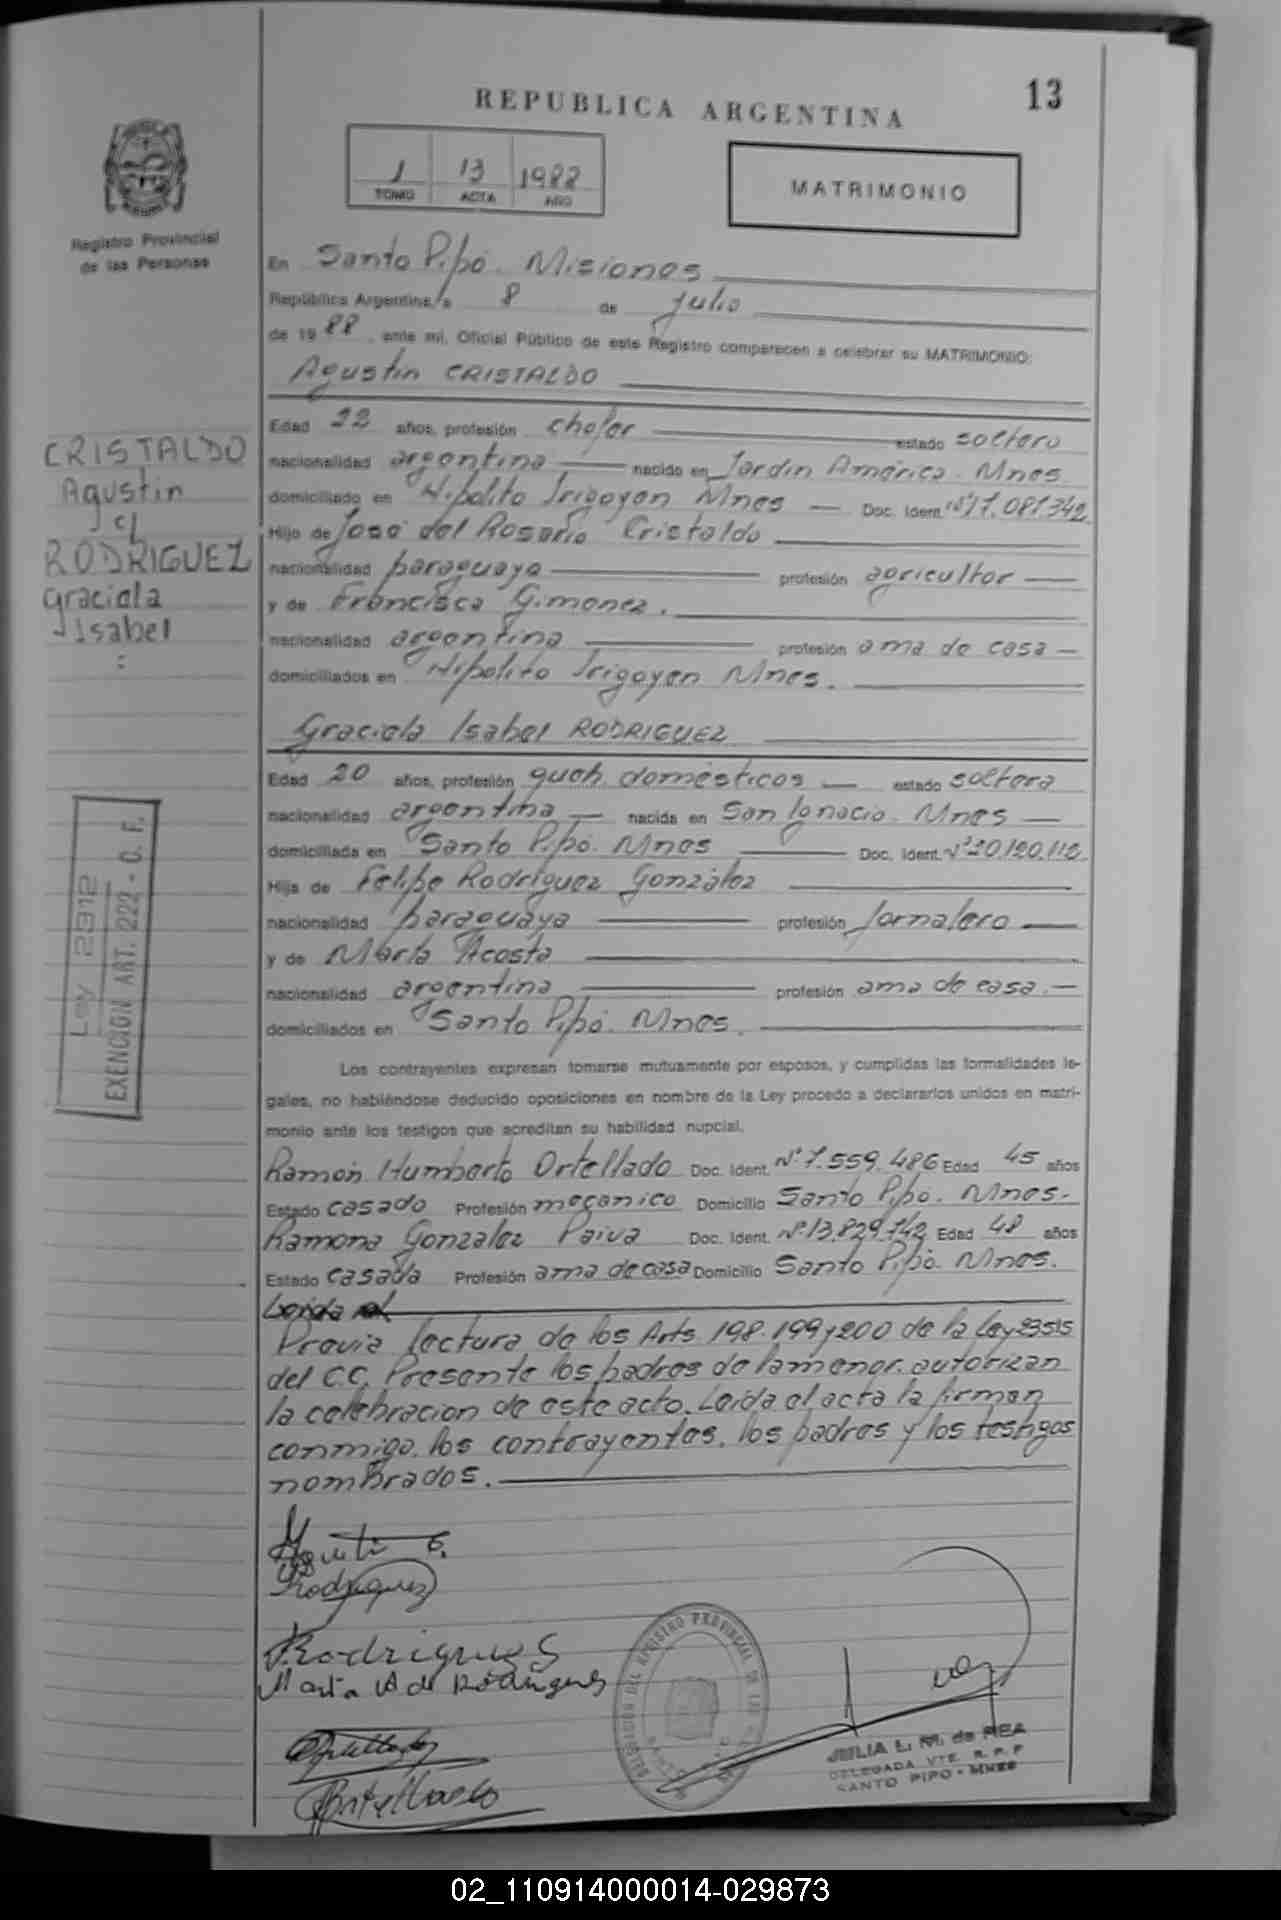 13
REPUBLICA ARGENTINA
1 13 1988
TOMO ACTA AÑO
MATRIMONIO
Registro Provincial
de las Personas
En Santo Pipó. Misiones
República Argentina, a 8 de julio
de 1988, ante mí, Oficial Público de este Registro comparecen a celebrar su MATRIMONIO:
Agustín CRISTALDO
Edad 22 años, profesión chofer estado soltero
nacionalidad argentina nacido en Jardín América. Mnes.
domiciliado en Hipólito Irigoyen Mnes Doc. Ident. Nº17.081342
Hijo de José del Rosario Cristaldo
nacionalidad paraguaya profesión agricultor
y de Francisca Gimenez.
nacionalidad argentina profesión ama de casa
domiciliados en Hipólito Irigoyen Mnes.
Graciela Isabel RODRIGUEZ
Edad 20 años, profesión queh. domésticos estado soltera
nacionalidad argentina nacida en San Ignacio. Mnes
domiciliada en Santo Pipó. Mnes Doc. Ident. Nº20.120.112
Hija de Felipe Rodríguez González
nacionalidad paraguaya profesión Jornalero
y de María Acosta
nacionalidad argentina profesión ama de casa.
domiciliados en Santo Pipó. Mnes.
Los contrayentes expresan tomarse mutuamente por esposos, y cumplidas las formalidades le-
gales, no habiéndose deducido oposiciones en nombre de la Ley procedo a declararlos unidos en matri-
monio ante los testigos que acreditan su habilidad nupcial.
Ramón Humberto Ortellado Doc. Ident. Nº7.559.486 Edad 45 años
Estado casado Profesión mecanico Domicilio Santo Pipó. Mnes.
Ramona Gonzalez Paiva Doc. Ident. Nº.13.829.742 Edad 48 años
Estado casada Profesión ama de casa Domicilio Santo Pipó. Mnes.
Leida el
Previa lectura de los Arts. 198.199 y 200 de la Ley 23515
del C.C. Presente los padres de la menor. autorizan
la celebracion de este acto. Leida el acta la firman
conmigo. los contrayentes. los padres y los testigos
nombrados.
CRISTALDO
Agustín
c/
RODRIGUEZ
Graciela
Isabel
Ley 2312
EXENCION ART. 222 - C. F.
Agustin C.
Rodriguez
Rodrigues
Marta A de Rodrigues
Ortellado
JULIA L. M. de REA
DELEGADA VTE. R. P. P
SANTO PIPO - MNES
02_110914000014-029873